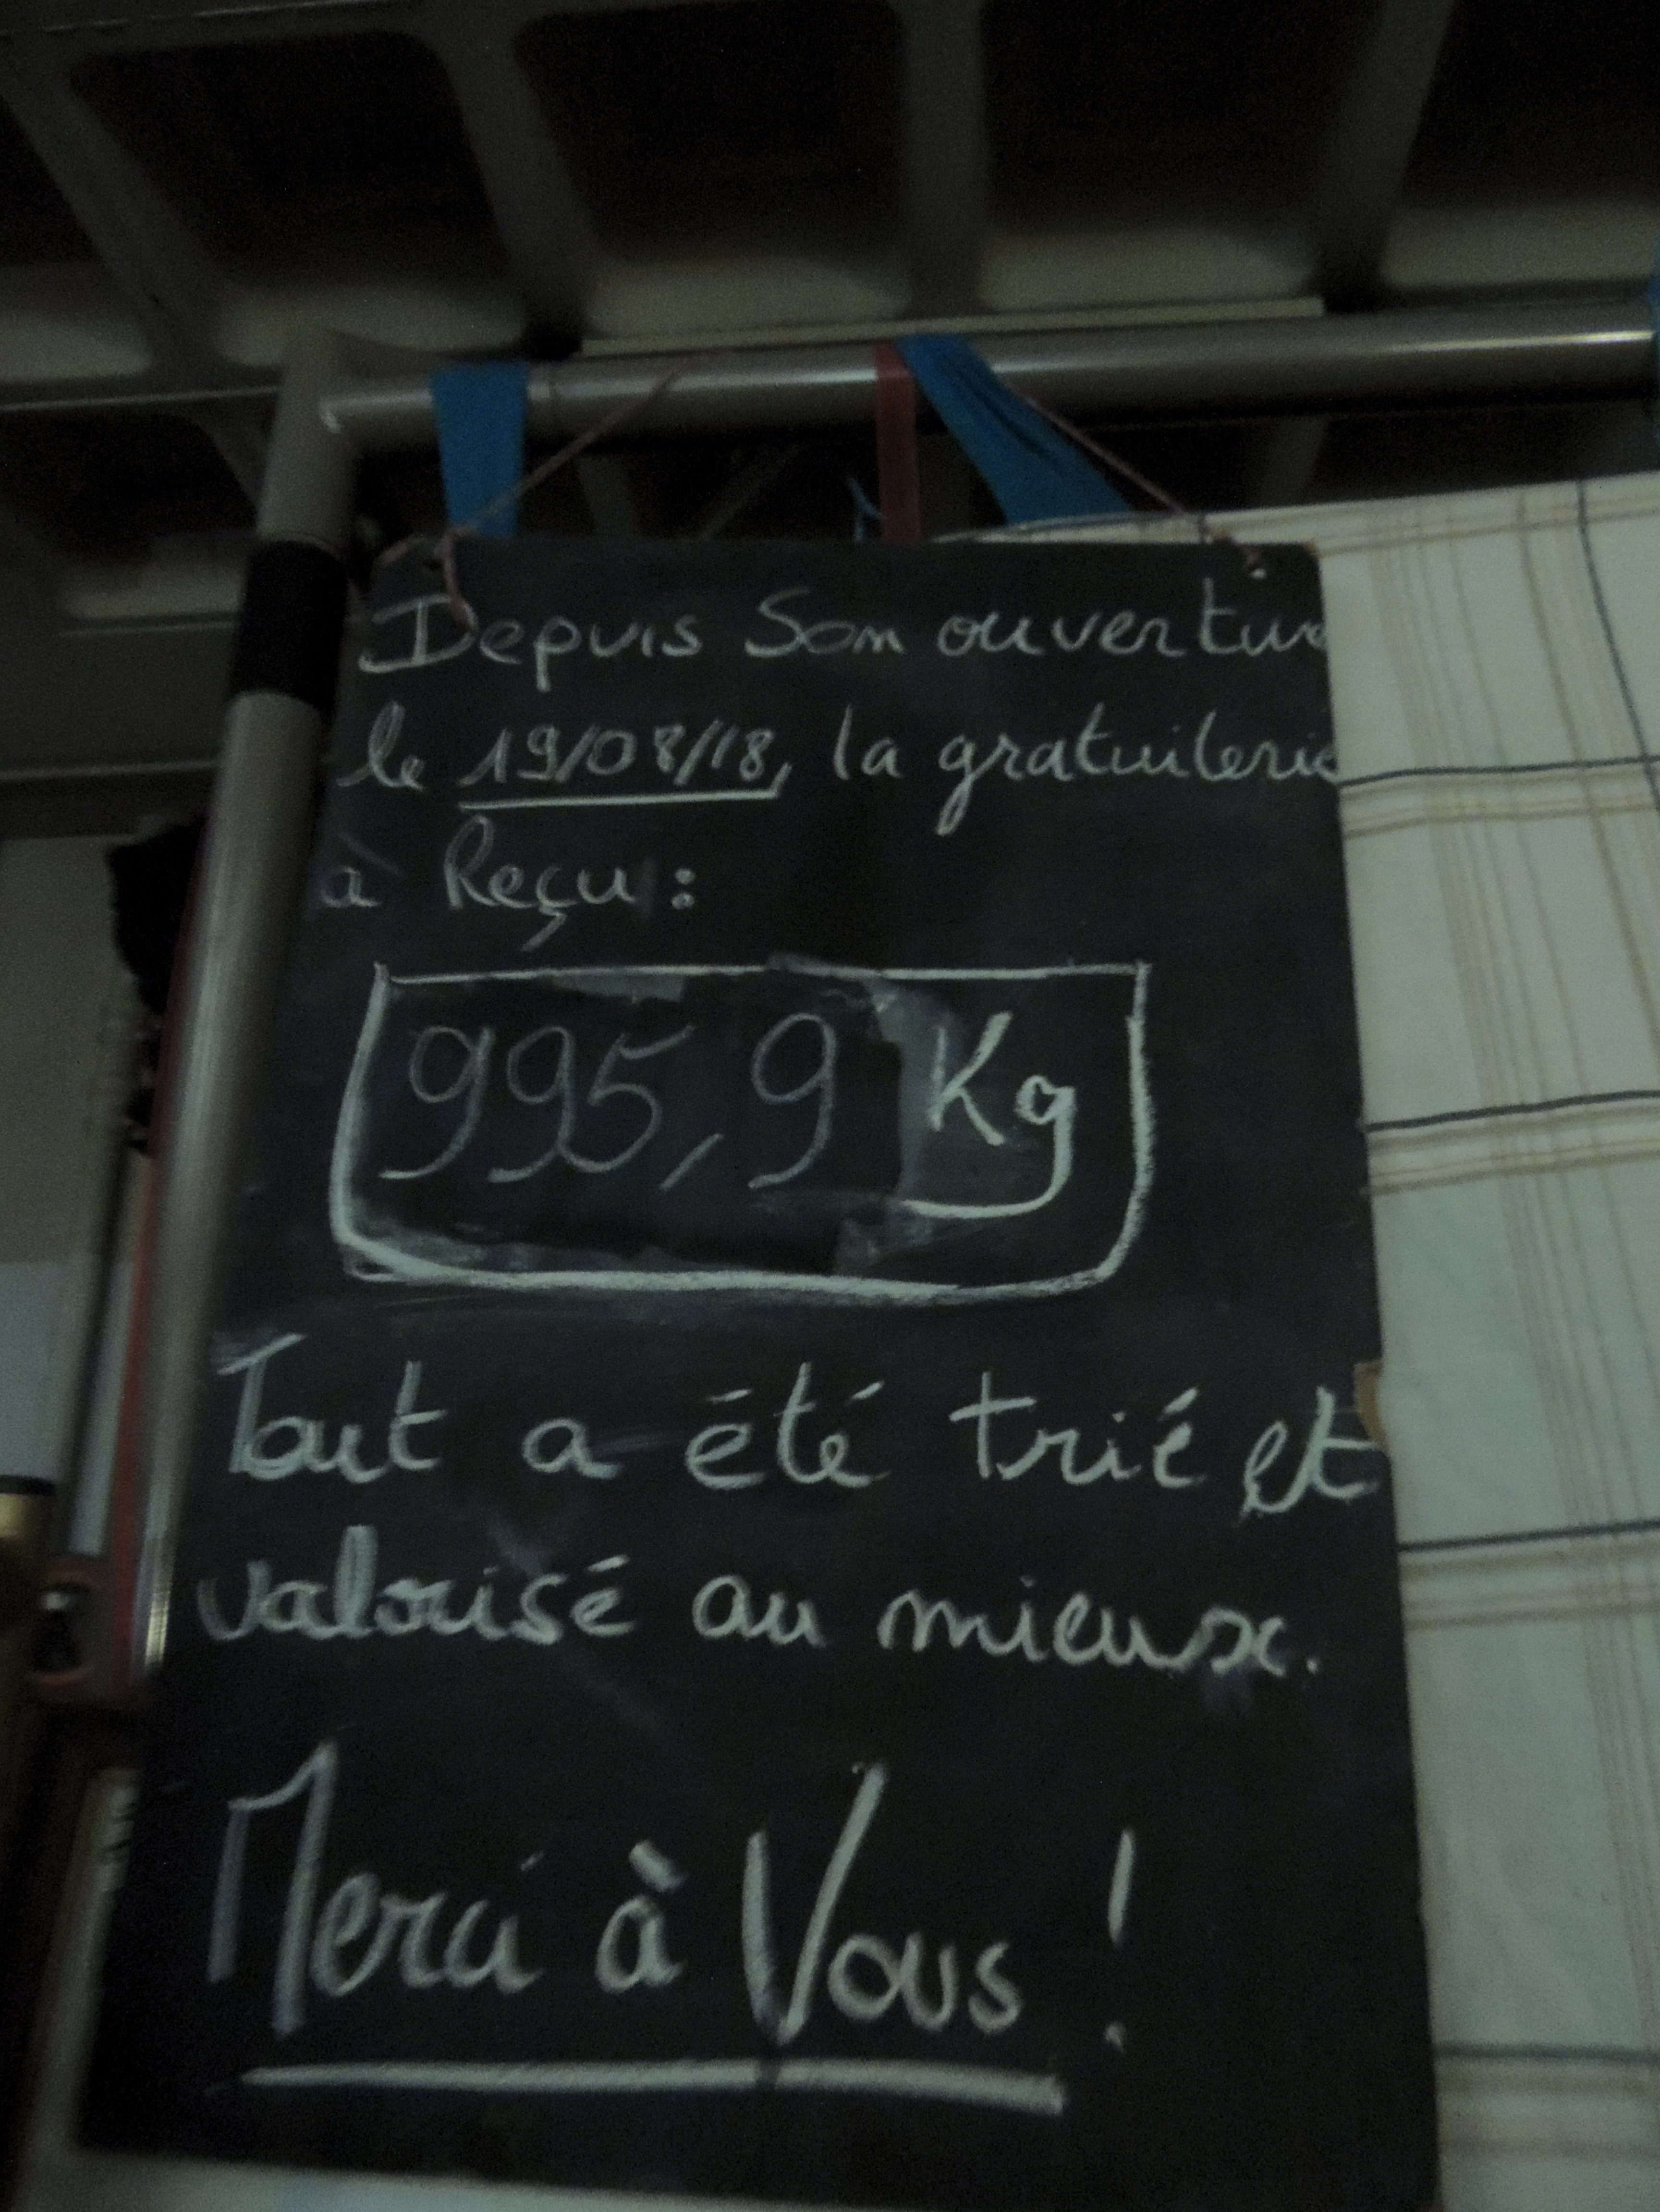 Depuis Son ouverture
le 19/08/18, la gratuiterie
à Reçu :
995,9 Kg
Tout a été trié et
valorisé au mieux.
Merci à Vous !